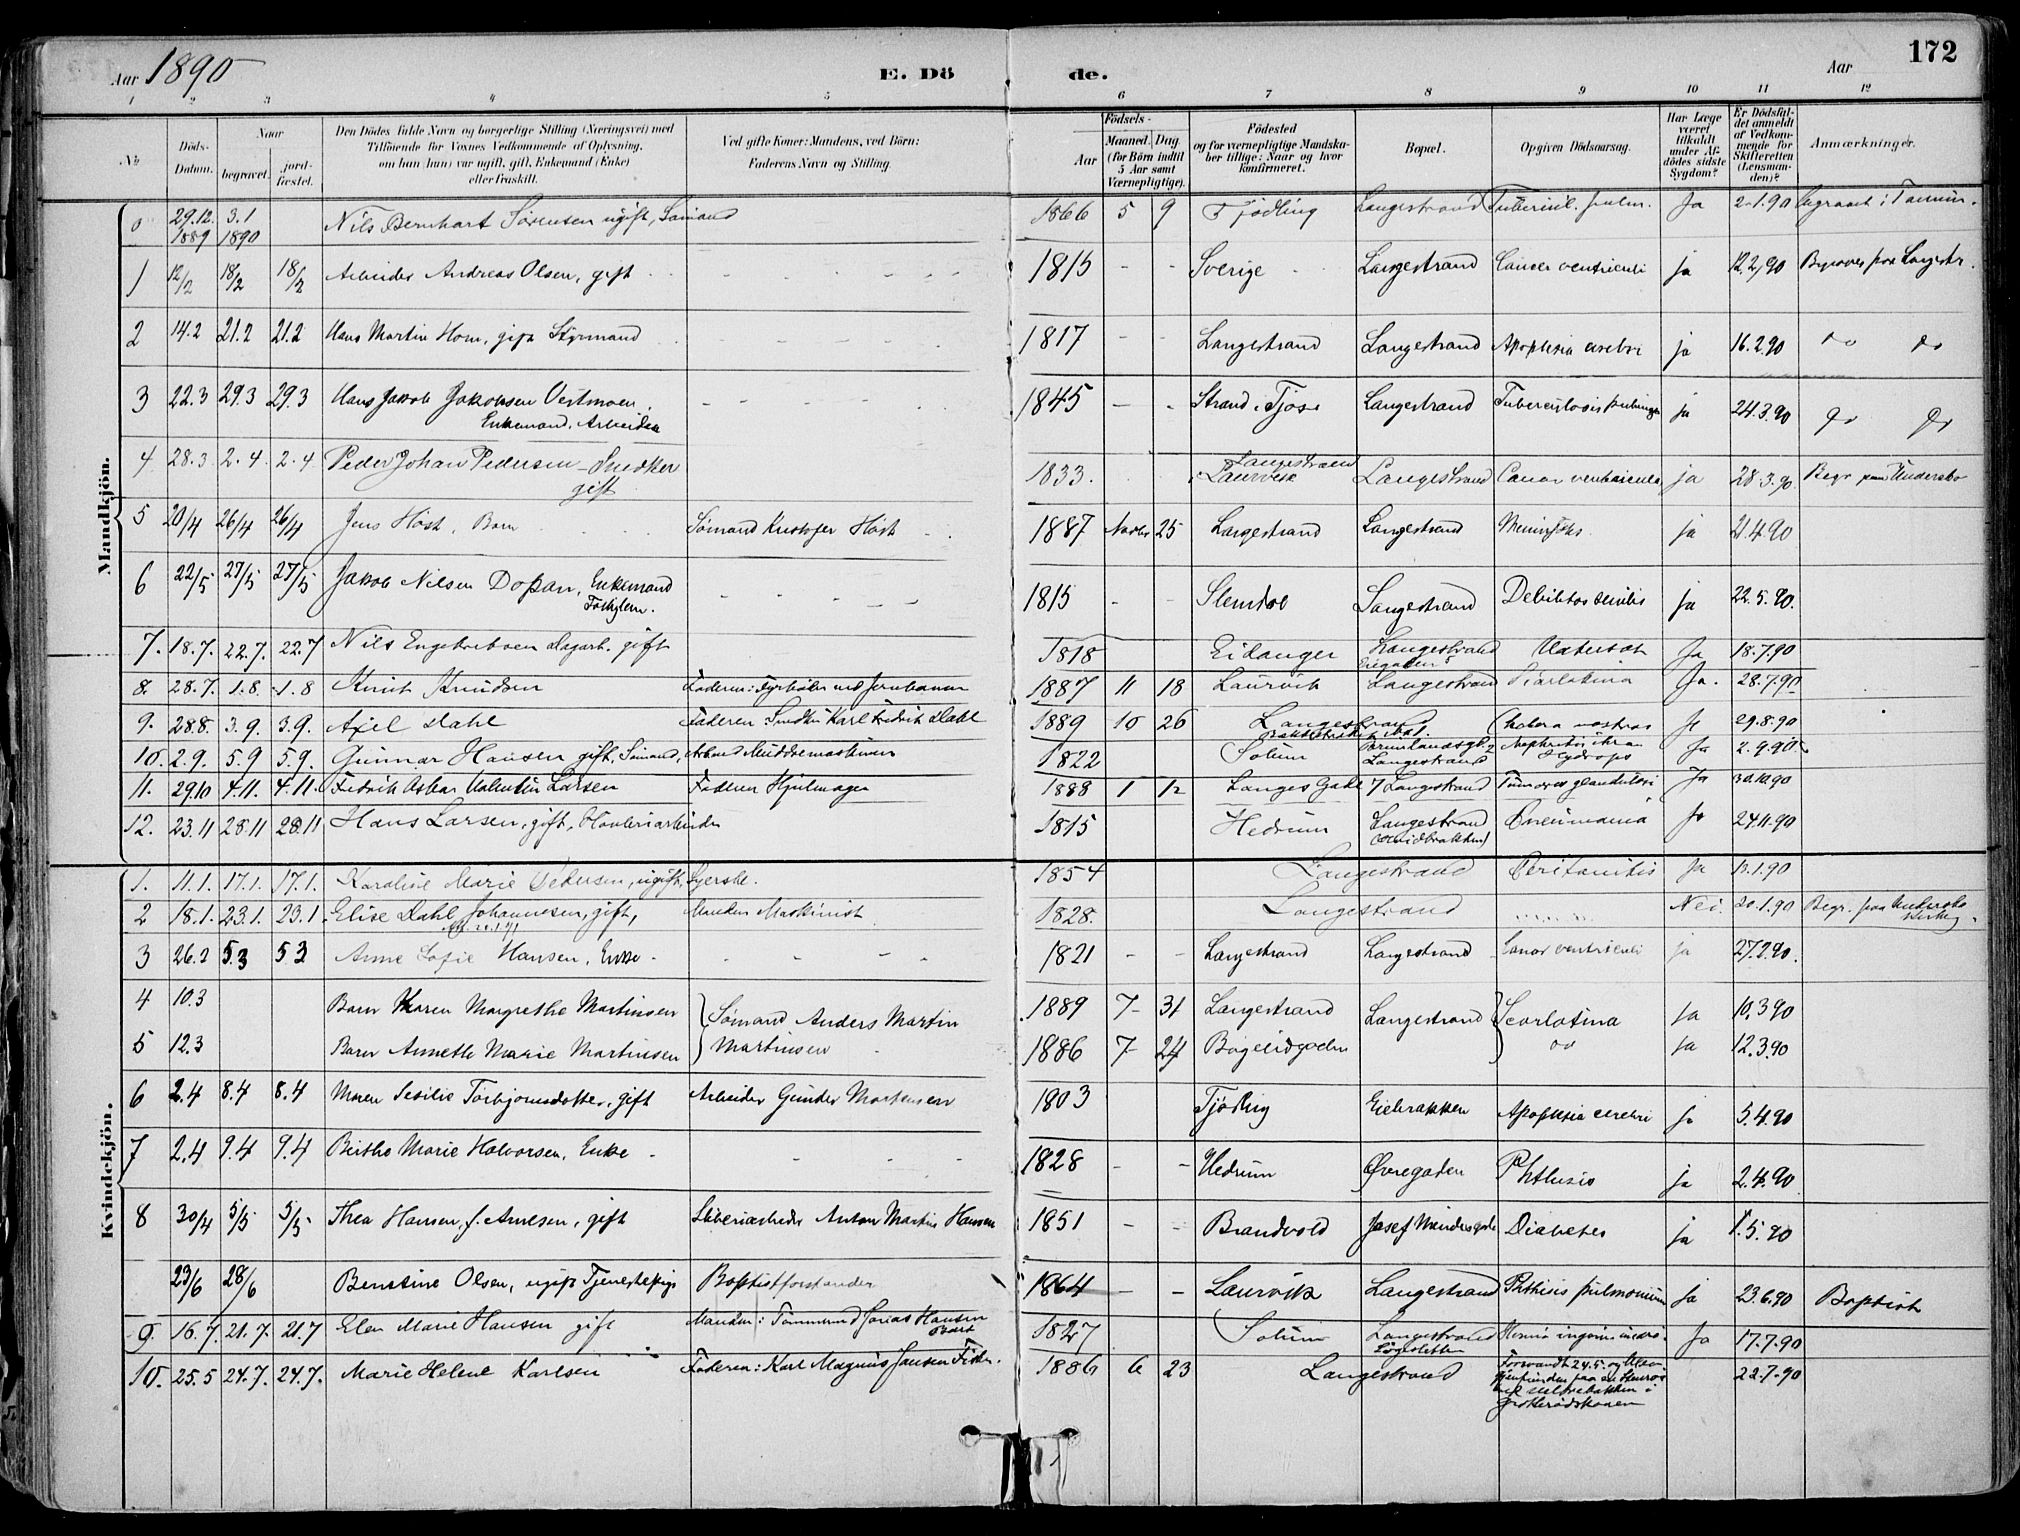 172
Aar 1890
E. Dö de.
Aar
1 2 3 4 5 6 7 8 9 10 11 12
No
Döds-Datum.
Naar
begravet.
jord-fæstet.
Den Dödes fulde Navn og borgerlige Stilling (Næringsvei) med
Tilföiende for Voxnes Vedkommende af Oplysning,
om han (hun) var ugift, gift, Enkemand (Enke)
eller fraskilt.
Ved gifte Koner: Mandens, ved Börn:
Faderens Navn og Stilling.
Födsels-
Aar
Maaned. Dag
(for Börn indtil
5 Aar samt
Værnepligtige).
Födested
og for værnepligtige Mandska-
ber tillige: Naar og hvor
konfirmeret.
Bopæl.
Opgiven Dödsaarsag.
Har Læge
været
tilkaldt
under Af-
dödes sidste
Sygdom?
Er Dödsfal-
det anmeldt
af Vedkom-
mende for
Skifteretten
(Lensman-
den)?
Anmærkninger.
Mandkjön.
0 29.12. 1889 3.1 1890 Nils Bernhart Sørensen ugift, Sømand 1866 5 9 Tjødling Langestrand Tubercul. pulm. Ja 2-1.90 begravet i Tanum.
1 12/2 18/2 18/2 Arbeider Andreas Olsen, gift - 1815 - - Sverige Langestrand Cancer ventriculi ja 12.2.90
2 14.2 21.2 21.2 Hans Martin Horn, gift Styrmand 1817 - - Langestrand Langestrand Apoplexia cerebri ja 16.2.90 do do
3 22.3 29.3 29.3 Hans Jakob Jakobsen Vestmoen, 1845 - - Strand i Tjøse Langestrand Tuberculosis pulmon ja 24.3.90 do do
Enkemand. Arbeider
4 28.3 2.4 2.4 Peder Johan Pedersen - Snedker 1833. Langestrand Laurvik Langestrand ja 28.3.90. Begr paa Undersbo
gift
5 20/4 26/4 26/4 Jens Høst, Barn Sømand Kristofer Høst 1887 Novbr 25 Langestrand Langestrand ja 21.4.90
6 22/5 27/5 27/5 Jakob Nilsen Dopan, Enkemand 1815 - - Slemdal Langestrand Debilitas senilis ja 22.5.90.
7. 18.7. 22.7. 22.7 Nils Engebretsen Dagarb. gift 1818 Eidanger Langestrand Ja 18.7.90
8. 28.7. 1.8. 1.8 Knut Knudsen Faderen: Fyrbøter ved Jernbanen 1887 11 18 Laurvik Langestrand Scarlatina Ja. 28.7.90
9. 28.8. 3.9. 3.9. Axel Dahl Faderen Snedker Karl Fredrik Dahl 1889 10 26 Langestrand Cholera nostras Ja 29.8.90
10. 2.9. 5.9 5.9. Gunnar Hansen gift, Sømand, Arb ved Muddermaskinen 1822 Solum Langestrand Hydrops Ja 2.9.90
11. 29.10 4.11. 4.11. Fredrik Oskar Valentin Larsen Faderen Hjulmager 1888 1 12 Langes Gade 7 Langestrand Ja 30.10.90
12. 23.11 28.11 28.11 Hans Larsen, gift, Høvleriarbeider 1815 Hedrum Langestrand Pneumonia Ja 24.11.90
Kvindekjön.
1. 11.1. 17.1. 17.1. Karoline Marie Pedersen, ugift, Syerske. 1854 Langestrand Peritonitis Ja 13.1.90
2 18.1. 23.1. 23.1. Elise Dahl Johannesen, gift, Manden Maskinist 1828. Langestrand Nei. 20.1.90 Begr. paa Undersbo
3 26.2 5.3 5.3 Anne Sofie Hansen, Enke - 1821 - - Langestrand Langestrand Cancer ventriculi ja 27.2.90.
4 10.3 Barn Karen Margrethe Martinsen Sømand Anders Martin 1889 7- 31 Langestrand Langestrand Scarlatina Ja 10.3.90
5 12.3 Barn Annette Marie Martinsen Martinsen 1886 7- 24 do Ja 12.3.90
6 2.4 8.4 8.4 Maren Sesilie Torbjørnsdatter, gift Arbeider Gunder Mortensen 1803 Tjødling Eiebrakken Apoplexia cerebri ja 5.4.90
7 2.4 9.4 9.4 Birthe Marie Halvorsen, Enke - 1828 - - Hedrum Øvregaden Phthisis ja 2.4.90
8 30/4 5/5 5/5 Thea Hansen, f. Arnesen, gift Sliberiarbeider Anton Martin Hansen 1851 - - Brandvold Diabetes ja 1.5.90
23/6 28/6 Berntine Olsen, ugift Tjenestepige Baptistforstander 1864 - - Laurvik Langestrand Phthisis pulmonum ja 23.6.90 Baptist
9. 16.7. 21.7. 21.7 Elen Marie Hansen gift Manden: Tømmermd Jonas Hansen 1827 Solum Langestrand Ja 17.7.90
10. 25.5 24.7. 24.7. Marie Helene Karlsen Faderen: Karl Magnus Jansen Fisker. 1886 6 23 Langestrand Forsvandt 24.5. og 22.7.90